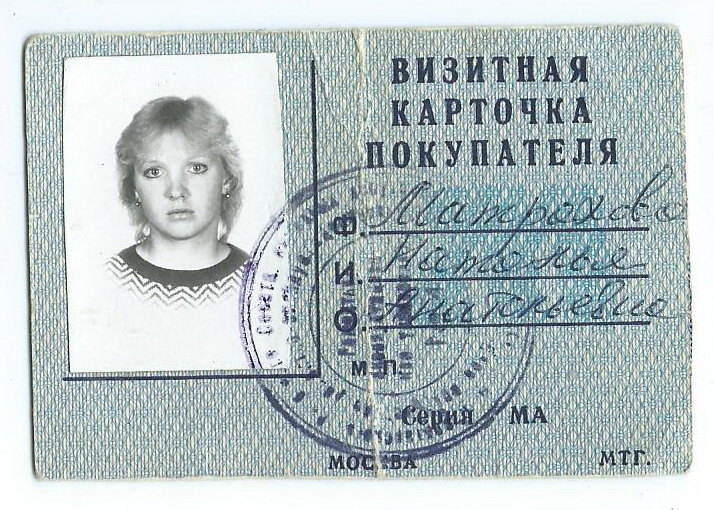 ВИЗИТНАЯ
КАРТОЧКА
ПОКУПАТЕЛЯ
Ф. Матрохова
И. Наталья
О. Анатольевна
М.П.
Серия МА
МОСКВА МТГ.